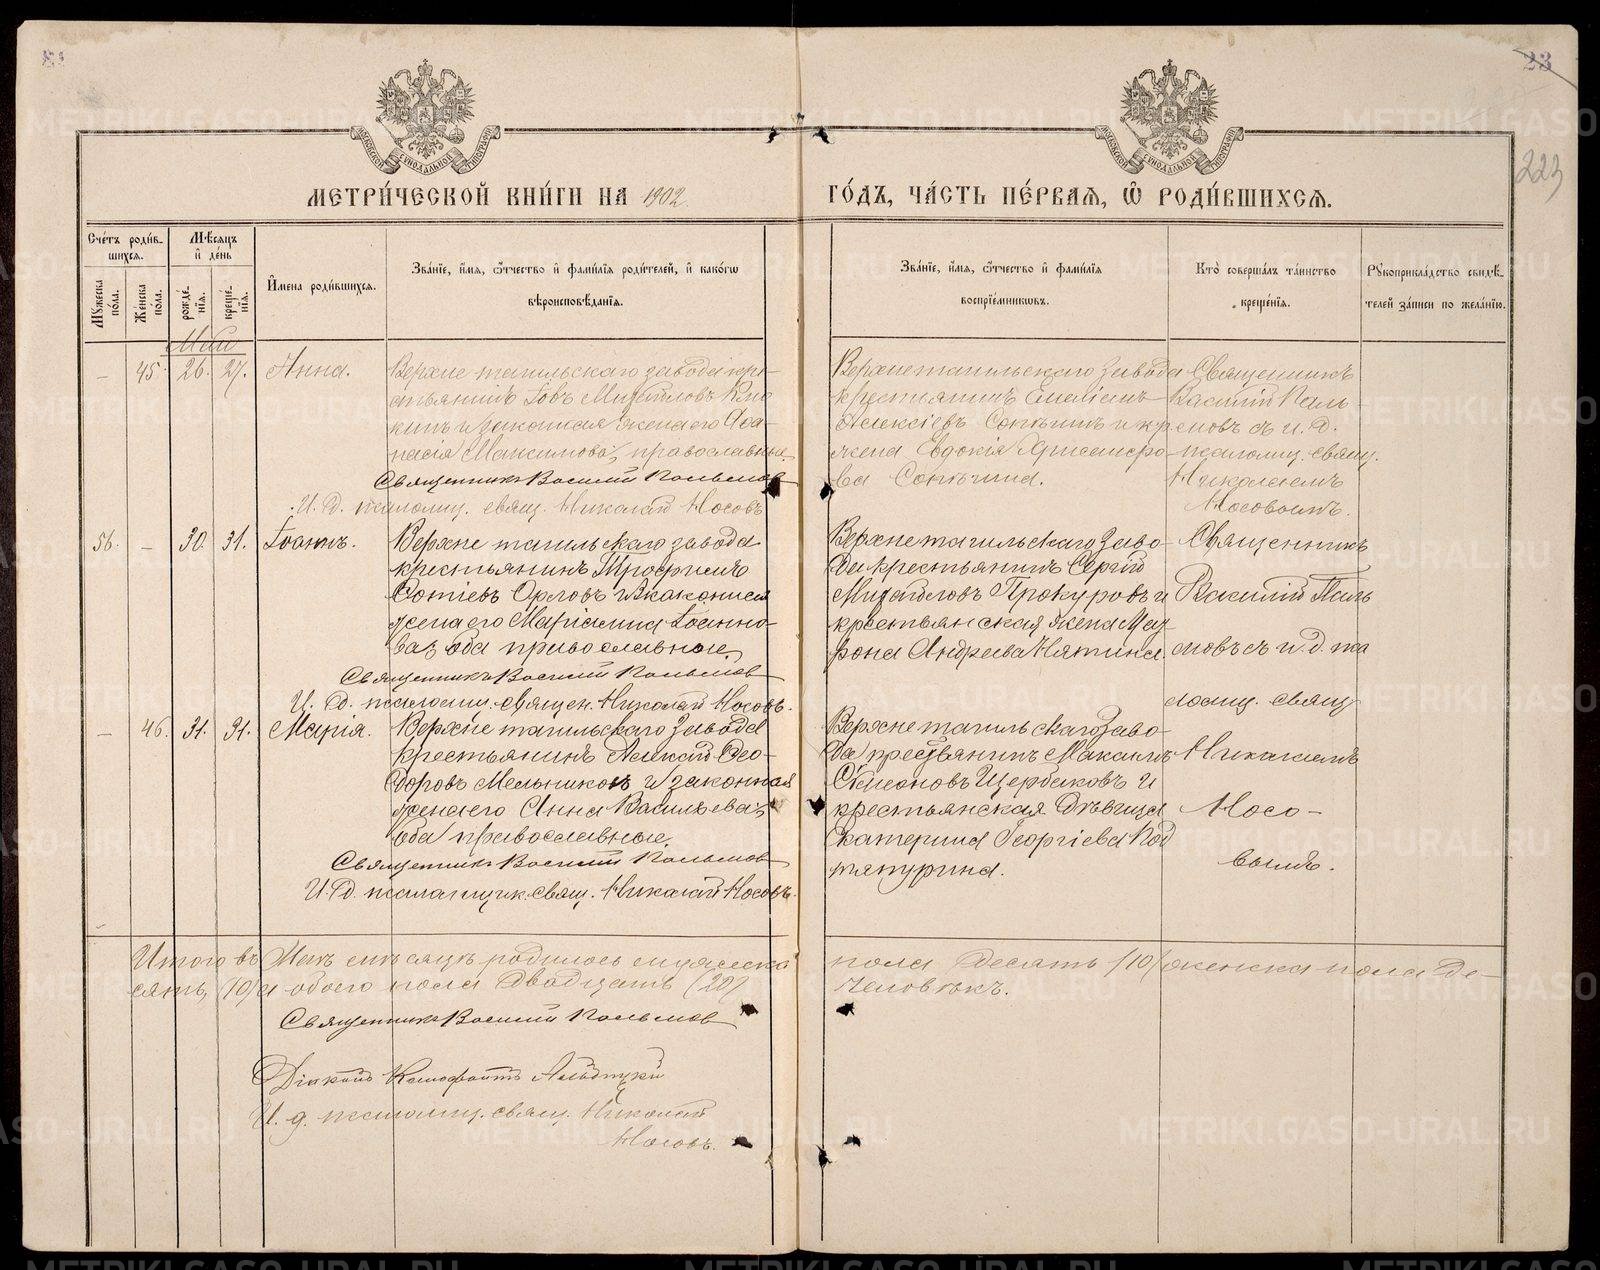 23
223
МОСКОВСКОЙ СѴНОДАЛЬНОЙ ТИПОГРАФІИ
МОСКОВСКОЙ СѴНОДАЛЬНОЙ ТИПОГРАФІИ
МЕТРИ́ЧЕСКОЙ КНИ́ГИ НА 1902 ГО́ДЪ, ЧА́СТЬ ПЕ́РВАЯ, Ѡ҆ РОДИ́ВШИХСѦ.
Сче́тъ роди́в-
шихся.
Мѣ́сяцъ
и҆ де́нь
Мꙋ́жеска
по́ла.
Же́нска
по́ла.
рожде́-
нїя.
креще́-
нїя.
И҆мена роди́вшихся.
Зва́нїе, и҆́мя, ѻ҆́тчество и҆ фами́лїя роди́телей, и҆ како́гѡ
вѣроисповѣ́данїя.
Зва́нїе, и҆́мя, ѻ҆́тчество и҆ фами́лїя
воспрїе́мникѡвъ.
Кто̀ соверша́лъ та́инство
креще́нїя.
Рꙋкоприкла́дство свидѣ́-
телей за́писи по жела́нїю.
Май
– 45. 26. 27. Анна.
Верхне тагильскаго завода кре-
стьянинъ Іовъ Михаиловъ
и законная жена его Аѳа-
насія Максимова, православные
Священникъ Василій Пальмовъ
И. Д. псаломщ. свящ. Николай Носовъ
Верхнетагильскаго завода
крестьянинъ Емеліанъ
Алексіевъ и кр
жена Евдокія Хрисанфо-
ва
Священникъ
Василій Паль-
мовъ съ и. д.
псаломщ. свящ.
Николаемъ
Носовымъ.
56. – 30. 31. Іоаннъ.
Верхне тагильскаго завода
крестьянинъ Трофимъ
Фотіевъ Орловъ и законная
жена его Маріамна Іоанно-
ва, оба православные
Священникъ Василій Пальмовъ
И. Д. псаломщ. священ. Николай Носовъ.
Верхнетагильскаго заво-
да крестьянинъ Сергій
Михаиловъ Прокуровъ и
крестьянская жена Мат-
рона Андреева
Священникъ
Василій Паль
мовъ съ и. д. пса
ломщ. свящ
– 46. 31. 31. Марія.
Верхне тагильскаго завода
крестьянинъ Алексій Ѳео-
доровъ Мельниковъ и законная
жена его Анна Васильева,
оба православные.
Священникъ Василій Пальмовъ
И. Д. псаломщик. свящ. Николай Носовъ.
Верхне тагильскаго заво-
да крестьянинъ Максимъ
Симоновъ Щербаковъ и
крестьянская дѣвица
Екатерина Георгіева Под
тяпурина.
Николаемъ
Носо-
вымъ.
Итого въ Маѣ мѣсяцѣ родилось мужеска пола десять /10/ женска пола де-
сять, /10/ а обоего пола двадцать (20) человѣкъ.
Священникъ Василій Пальмовъ
Діаконъ Ксенофонтъ
И. д. псаломщ. свящ. Николай
Носовъ.
METRIKI.GASO-URAL.RU